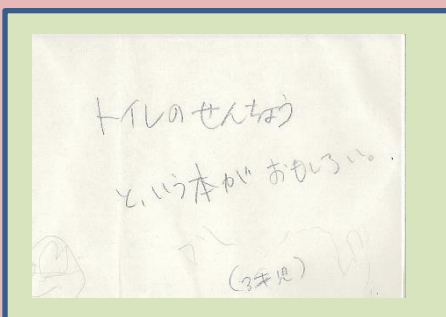 トイレのせんちょう
という本がおもしろい。
(3才児)